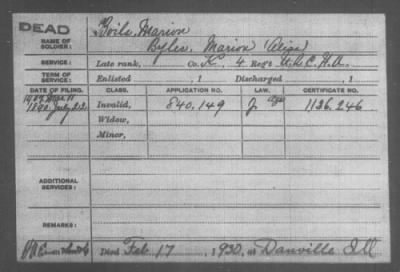 DEAD
NAME OF SOLDIER: Boils, Marion
Byler, Marion (Alias)
SERVICE: Late rank, Co. K, 4 Reg't U.S.C.H.A.
TERM OF SERVICE: Enlisted , 1 Discharged , 1
DATE OF FILING. CLASS. APPLICATION NO. LAW. CERTIFICATE NO.
1890, July 22 Invalid, 840,149 J 1136,246
Widow,
Minor,
ADDITIONAL SERVICES:
REMARKS:
Died Feb 17, 1930, at Danville Ill